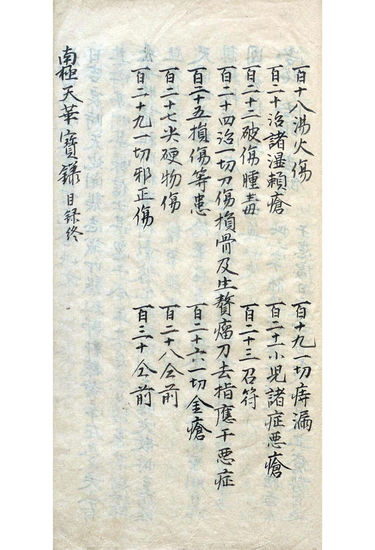 百十八湯火傷 百十九一切痔漏
百二十治諸湿賴瘡 百二十一小児諸症悪瘡
百二十二破傷腫毒 百二十三召符
百二十四治一切刀傷損骨及生贅瘤刀去指應干悪症
百二十五損傷等患 百二十六一切金瘡
百二十七尖硬物傷 百二十八仝前
百二十九一切邪正傷 百三十仝前
南極天華寶錄目録終